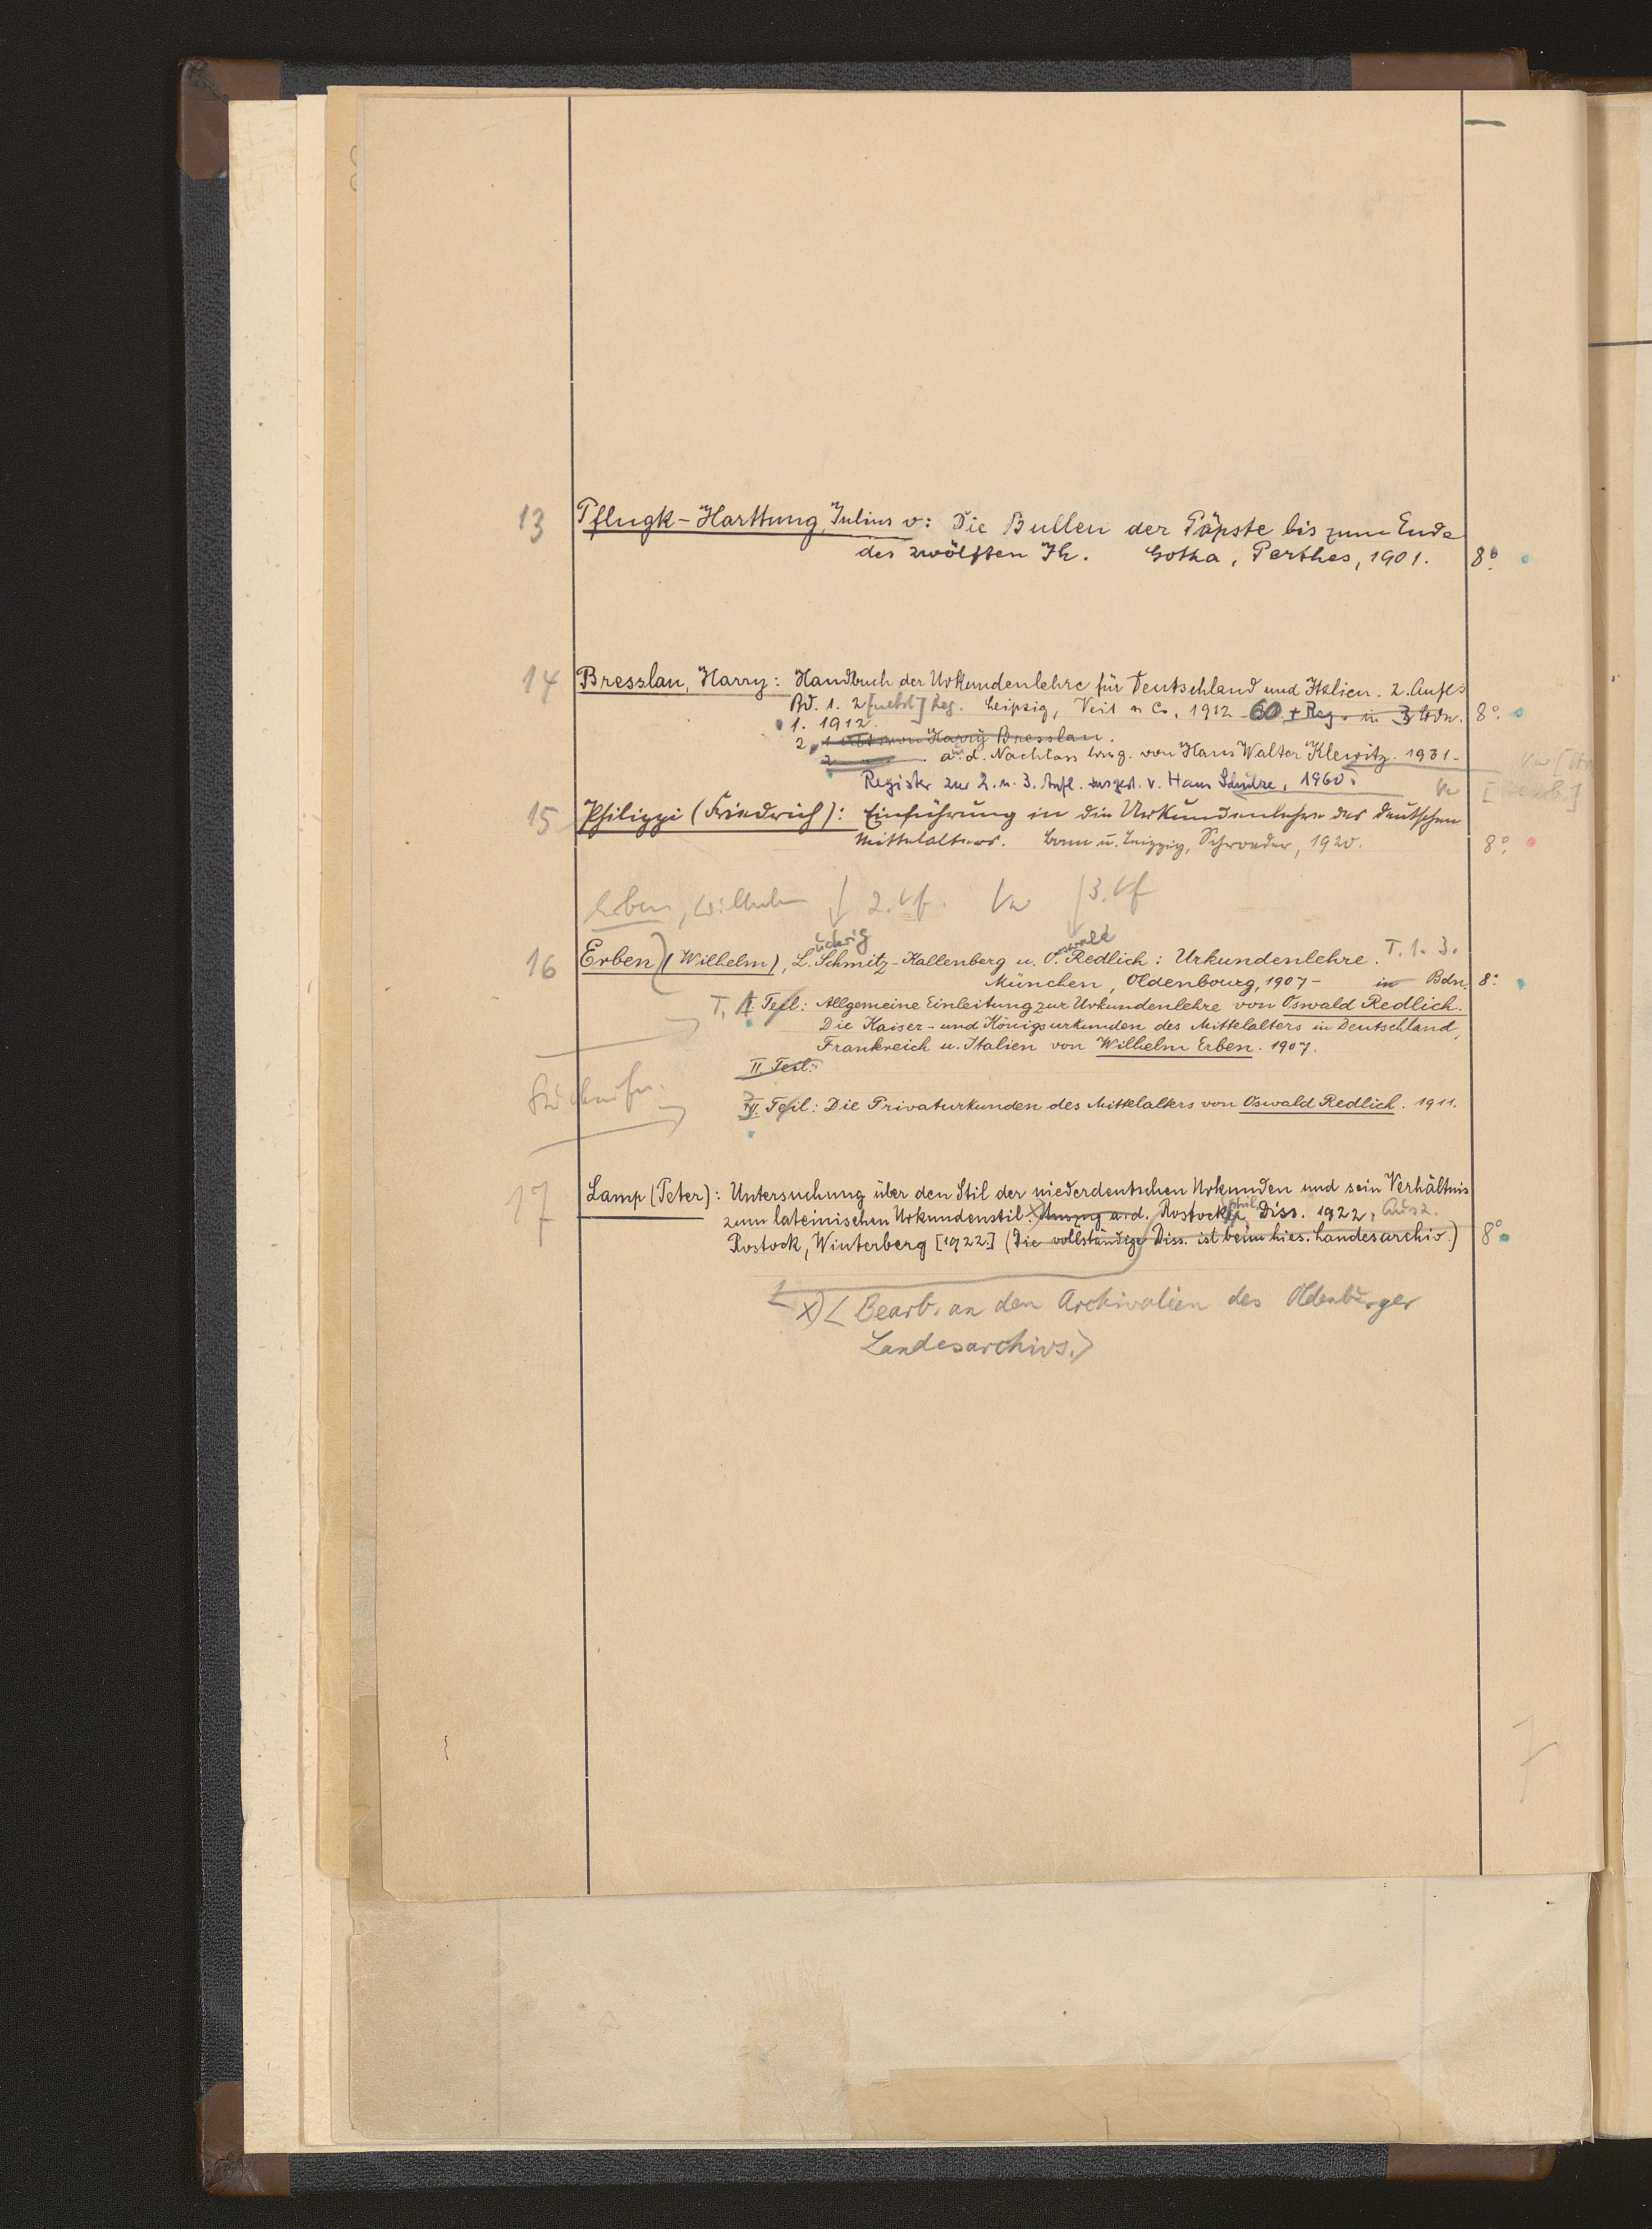 13 Pflugk-Harttung, Julius v: Die Bullen der Päpste bis zum Ende
des zwölften Jh. Gotha, Perthes, 1901. 8°.
14 Bresslau, Harry: Handbuch der Urkundenlehre für Deutschland und Italien. 2. Aufl.
Bd. 1. 2 [nebst] Reg. Leipzig, Veit u Co, 1912-60 + Reg. in 3 Bdn. 8°.
1. 1912.
2, 1 Abt. von Harry Bresslau.
2 aus d. Nachlass hrsg. von Hans Walter Klewitz. 1931.
Register zur 2. u. 3. Aufl. ausgest. v. Hans Schulze, 1960.
15 Philippi (Friedrich): Einführung in die Urkundenlehre des deutschen
Mittelalters. Bonn u. Leipzig, Schroeder, 1920. 8°.
Erben, Wilhelm 2. Vf. Vw 3. Vf
16 Erben (Wilhelm), L.udwig Schmitz-Kallenberg u. O.swald Redlich: Urkundenlehre. T. 1. 3.
München, Oldenbourg, 1907- in Bdn. 8°.
T. I. Teil: Allgemeine Einleitung zur Urkundenlehre von Oswald Redlich.
Die Kaiser- und Königsurkunden des Mittelalters in Deutschland,
Frankreich u. Italien von Wilhelm Erben. 1907.
II. Teil:
III. Teil: Die Privaturkunden des Mittelalters von Oswald Redlich. 1911.
17 Lamp (Peter): Untersuchung über den Stil der niederdeutschen Urkunden und sein Verhältnis
zum lateinischen Urkundenstil. Auszug a. d. Rostock, phil. Diss. 1922, Ausz.
Rostock, Winterberg [1922.] (Die vollständige Diss. ist beim hies. Landesarchiv.) 8°
x) < Bearb. an den Archivalien des Oldenburger
Landesarchivs.>
7